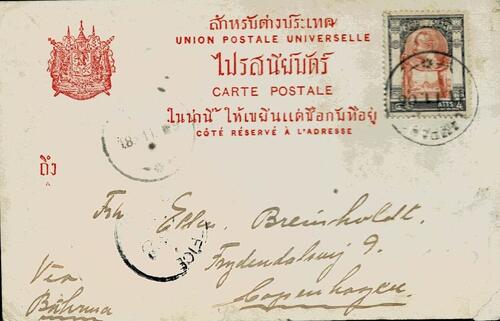 สำหรับต่างประเทศ
UNION POSTALE UNIVERSELLE
ไปรสนียบัตร์
CARTE POSTALE
ในน่านี้ ให้เขียนแต่ชื่อกับที่อยู่
CÔTÉ RÉSERVÉ À L'ADRESSE
ATTS
18 11
ถึง
Frk Ellen Breinholdt.
Frydendalsvej 9.
Copenhagen.
Via